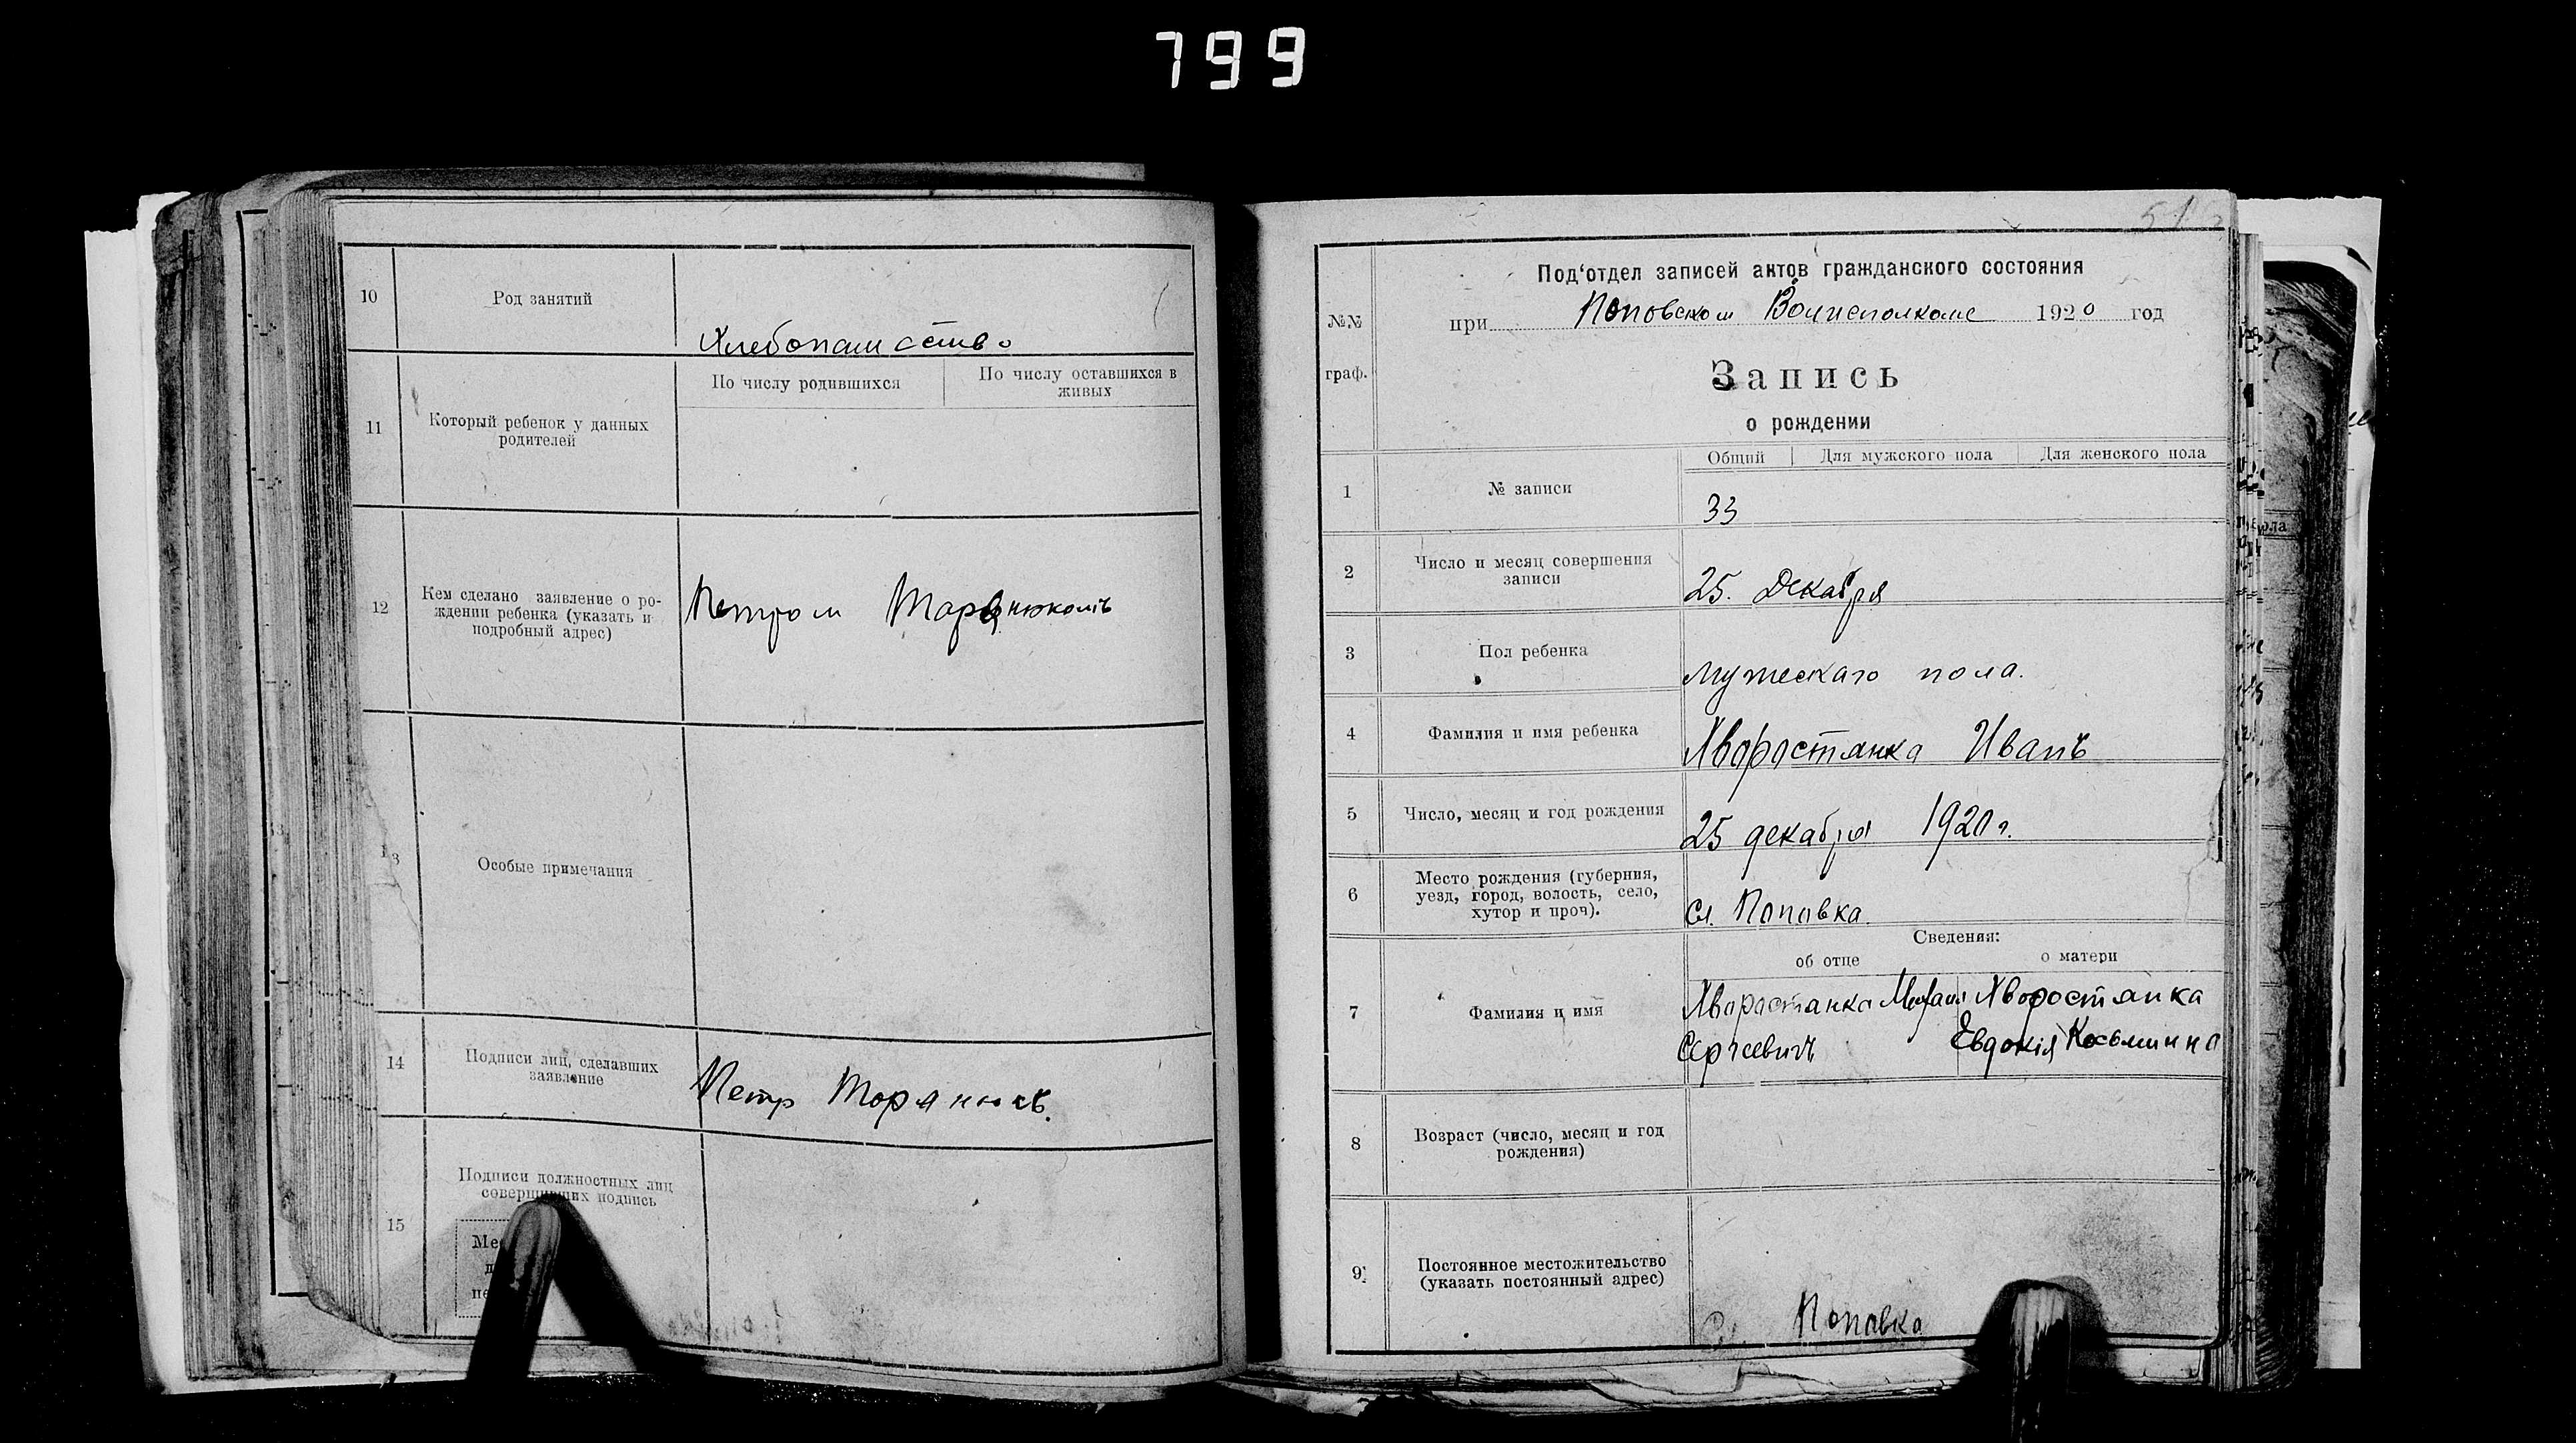 799
10
Род занятий
Хлебопашество
11
Который ребенок у данных
родителей
По числу родившихся
По числу оставшихся в
живых
12
Кем сделано заявление о ро-
ждении ребенка (указать и
подробный адрес)
Петром Таранюкомъ
13
Особые примечания
14
Подписи лиц, сделавших
заявление
Петр Торянюкъ.
15
Подписи должностных лиц
совершивших подпись
51
№№
граф.
Под‘отдел записей актов гражданского состояния
при Поповском Волисполкоме 1920 год
Запись
о рождении
Общий Для мужского пола Для женского пола
1
№ записи
33
2
Число и месяц совершения
записи
25. Декабря
3
Пол ребенка
мужескаго пола.
4
Фамилия и имя ребенка
Хворостянка Иванъ
5
Число, месяц и год рождения
25 декабря 1920 г.
6
Место рождения (губерния,
уезд, город, волость, село,
хутор и проч).
Сл. Поповка
Сведения:
об отце о матери
7
Фамилия и имя
Хворостянка Михаил Хворостянка
Сергеевичъ Евдокія Косьминна
8
Возраст (число, месяц и год
рождения)
9
Постоянное местожительство
(указать постоянный адрес)
Сл. Поповка